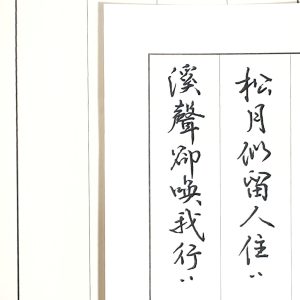 松月似留人住〻
溪聲卻喚我行〻